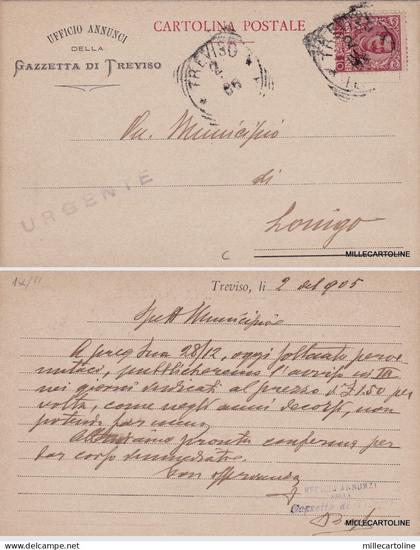 UFFICIO ANNUNCI
DELLA
GAZZETTA DI TREVISO
CARTOLINA POSTALE
TREVISO
TREVISO
On. Municipio
di
Lonigo
URGENTE
C
MILLECARTOLINE
Treviso, li 2 del 905
Spett Municipio
A preg sua 28/12, oggi soltanto perve
nutaci, pubblicheremo l'avviso in III
nei giorni indicati al prezzo d £ 1.50 per
volta, come negli anni decorsi, non
potendo far meno
pronta conferma per
dar corso immediato.
Con osservanza
UFFICIO ANNUNZI
DELLA
Gazzetta di
MILLECARTOLINE